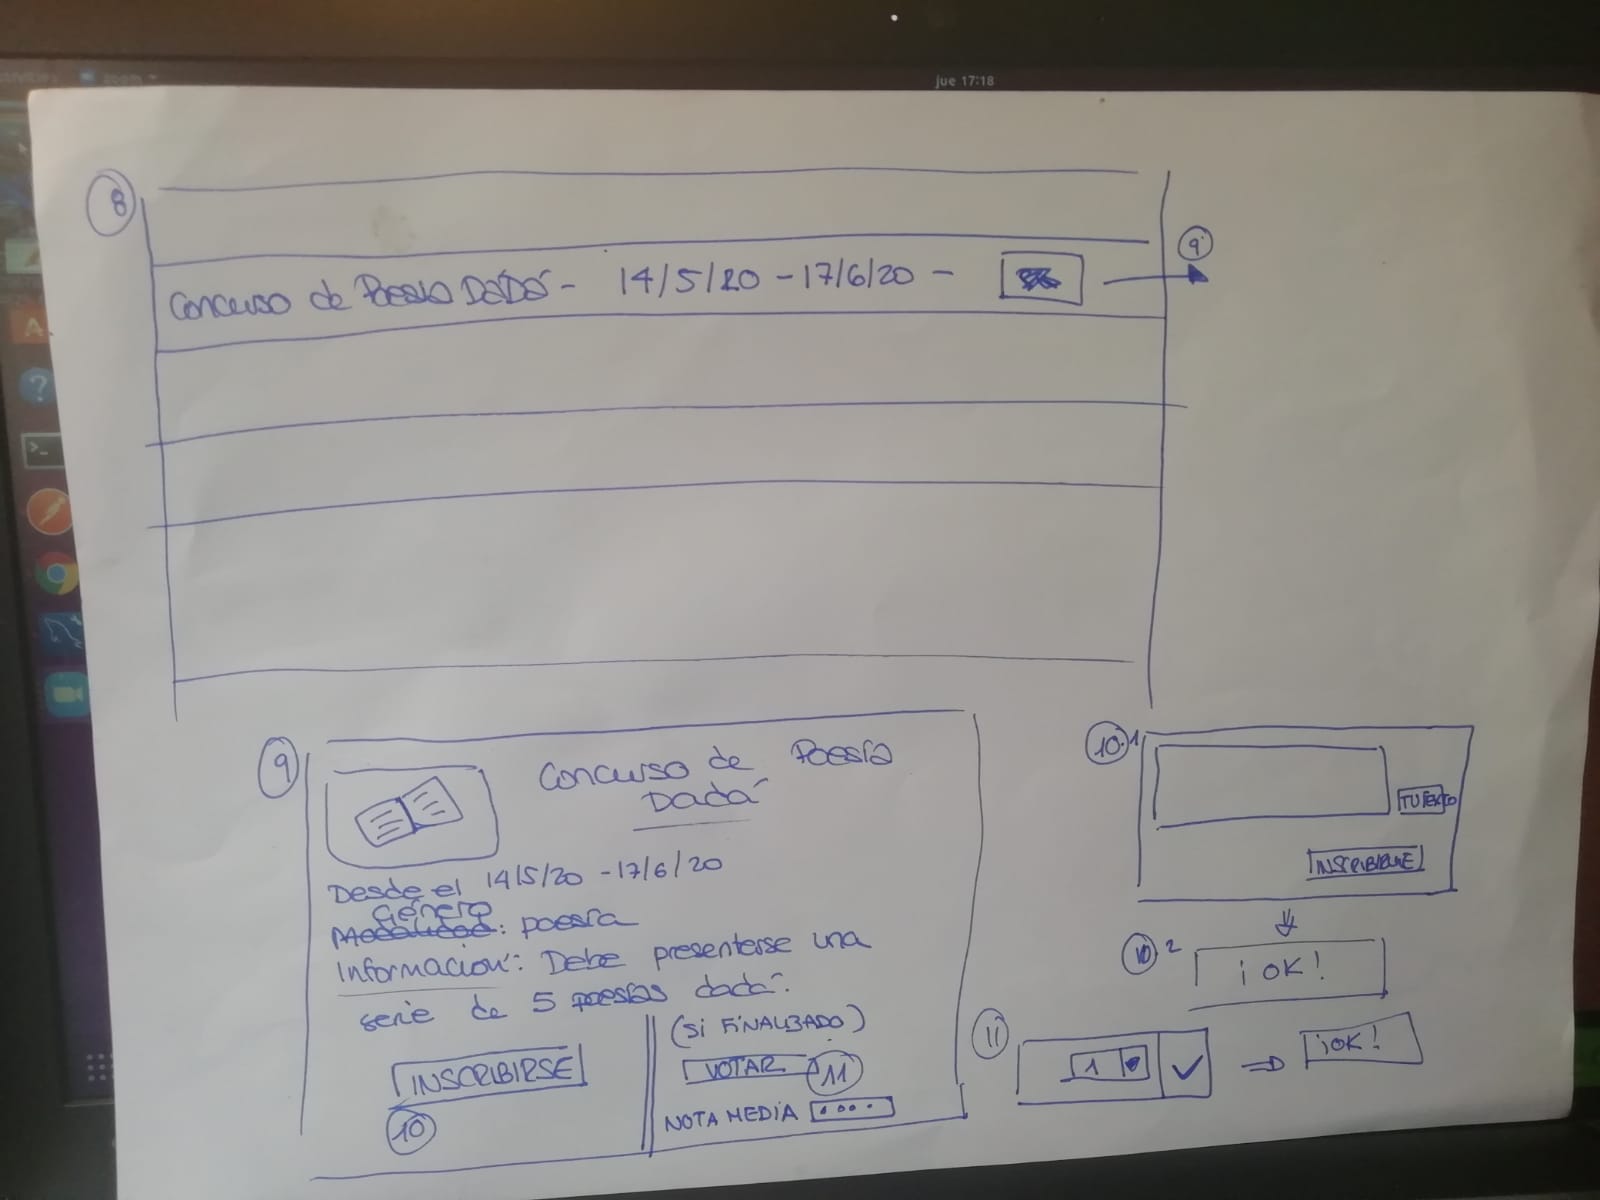 zoom
jue 17:18
8
Concurso de Poesía DaDá - 14/5/20 - 17/6/20 -
9
9
Concurso de Poesía
Dadá
Desde el 14/5/20 - 17/6/20
Género
: poesía
Información: Debe presentarse una
serie de 5 poesías dadá.
INSCRIBIRSE
10
(SI FINALIZADO)
VOTAR 11
NOTA MEDIA
10.1
TU TEXTO
INSCRIBIRME
10.2
¡OK!
11
1
¡OK!